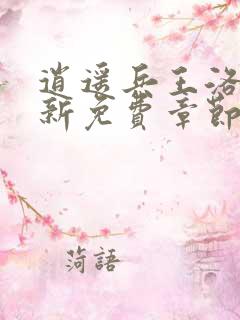 逍遥兵王洛
新免费章節
菏語